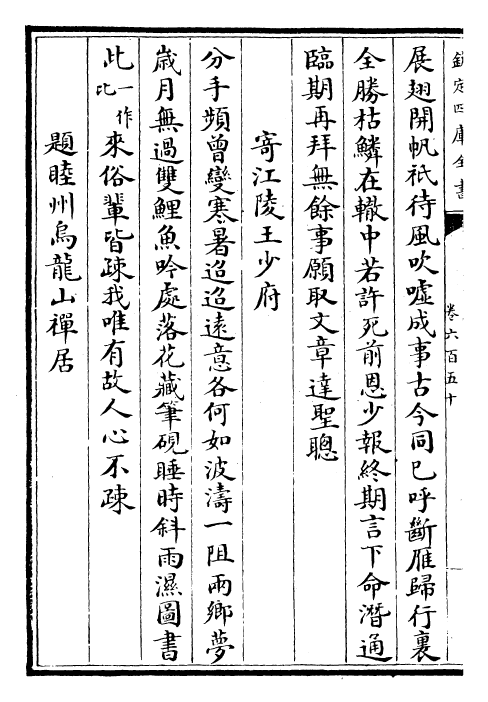 欽定四庫全書
卷六百五十
展翅開帆祇待風吹噓成事古今同已呼斷雁歸行裏
全勝枯鱗在轍中若許死前恩少報終期言下命潛通
臨期再拜無餘事願取文章達聖聰
寄江陵王少府
分手頻曾變寒暑迢迢遠意各何如波濤一阻兩鄉夢
歲月無過雙鯉魚吟處落花藏筆硯睡時斜雨濕圖書
此一作比來俗輩皆疎我唯有故人心不疎
題睦州烏龍山禪居